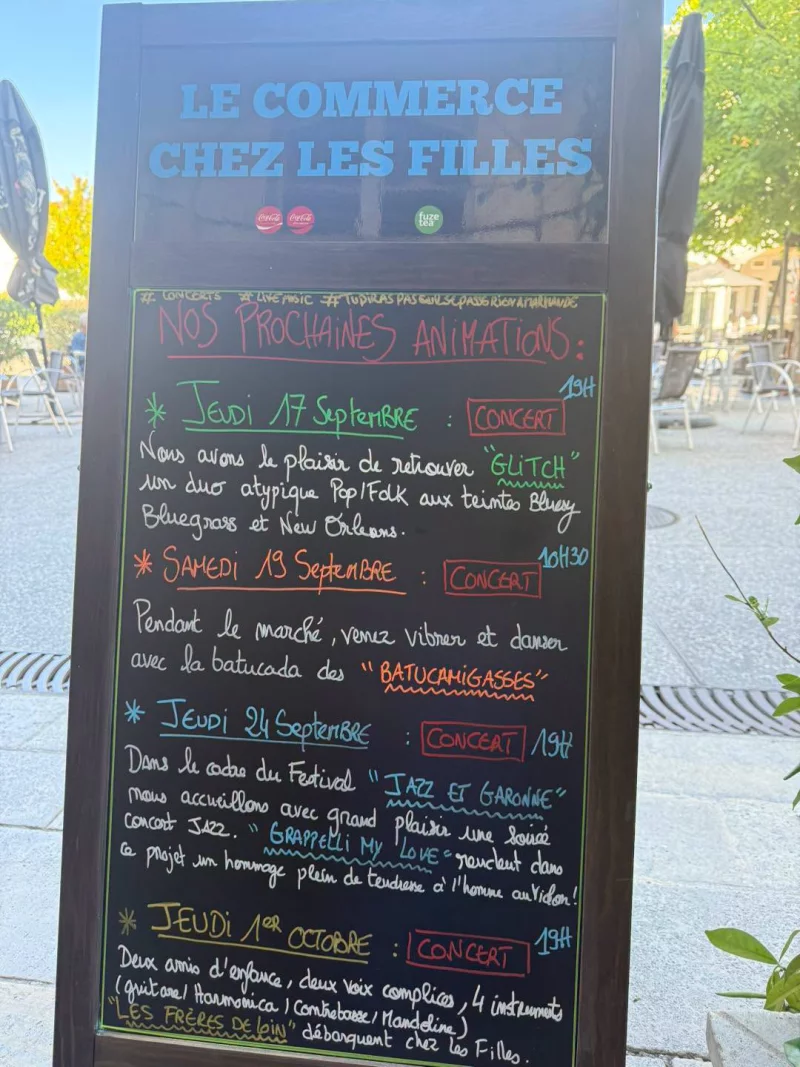 LE COMMERCE
CHEZ LES FILLES
Coca-Cola Coca-Cola fuze tea
# CONCERTS # LIVE MUSIC # TUDIRASPASQU'ILSEPASSERIENAMARMANDE
NOS PROCHAINES ANIMATIONS :
* JEUDI 17 SeptemBRE : CONCERT 19H
Nous avons le plaisir de retrouver "GLITCH"
un duo atypique Pop/Folk aux teintes Bluesy
Bluegrass et New Orleans.
* SAMEDI 19 SeptemBRE : CONCERT 10H30
Pendant le marché, venez vibrer et danser
avec la batucada des "BATUCAMIGASSES"
* JEUDI 24 SeptemBRE : CONCERT 19H
Dans le cadre du Festival "JAZZ ET GARONNE"
nous accueillons avec grand plaisir une soirée
concert JAZZ. "GRAPPELLI MY LOVE" rendent dans
ce projet un hommage plein de tendresse à l'homme au violon!
* JEUDI 1ER OCTOBRE : CONCERT 19H
Deux amis d'enfance, deux voix complices, 4 instruments
(guitare/Harmonica/Contrebasse/Mandoline)
"LES FRÈRES DE LOIN" débarquent chez les Filles.